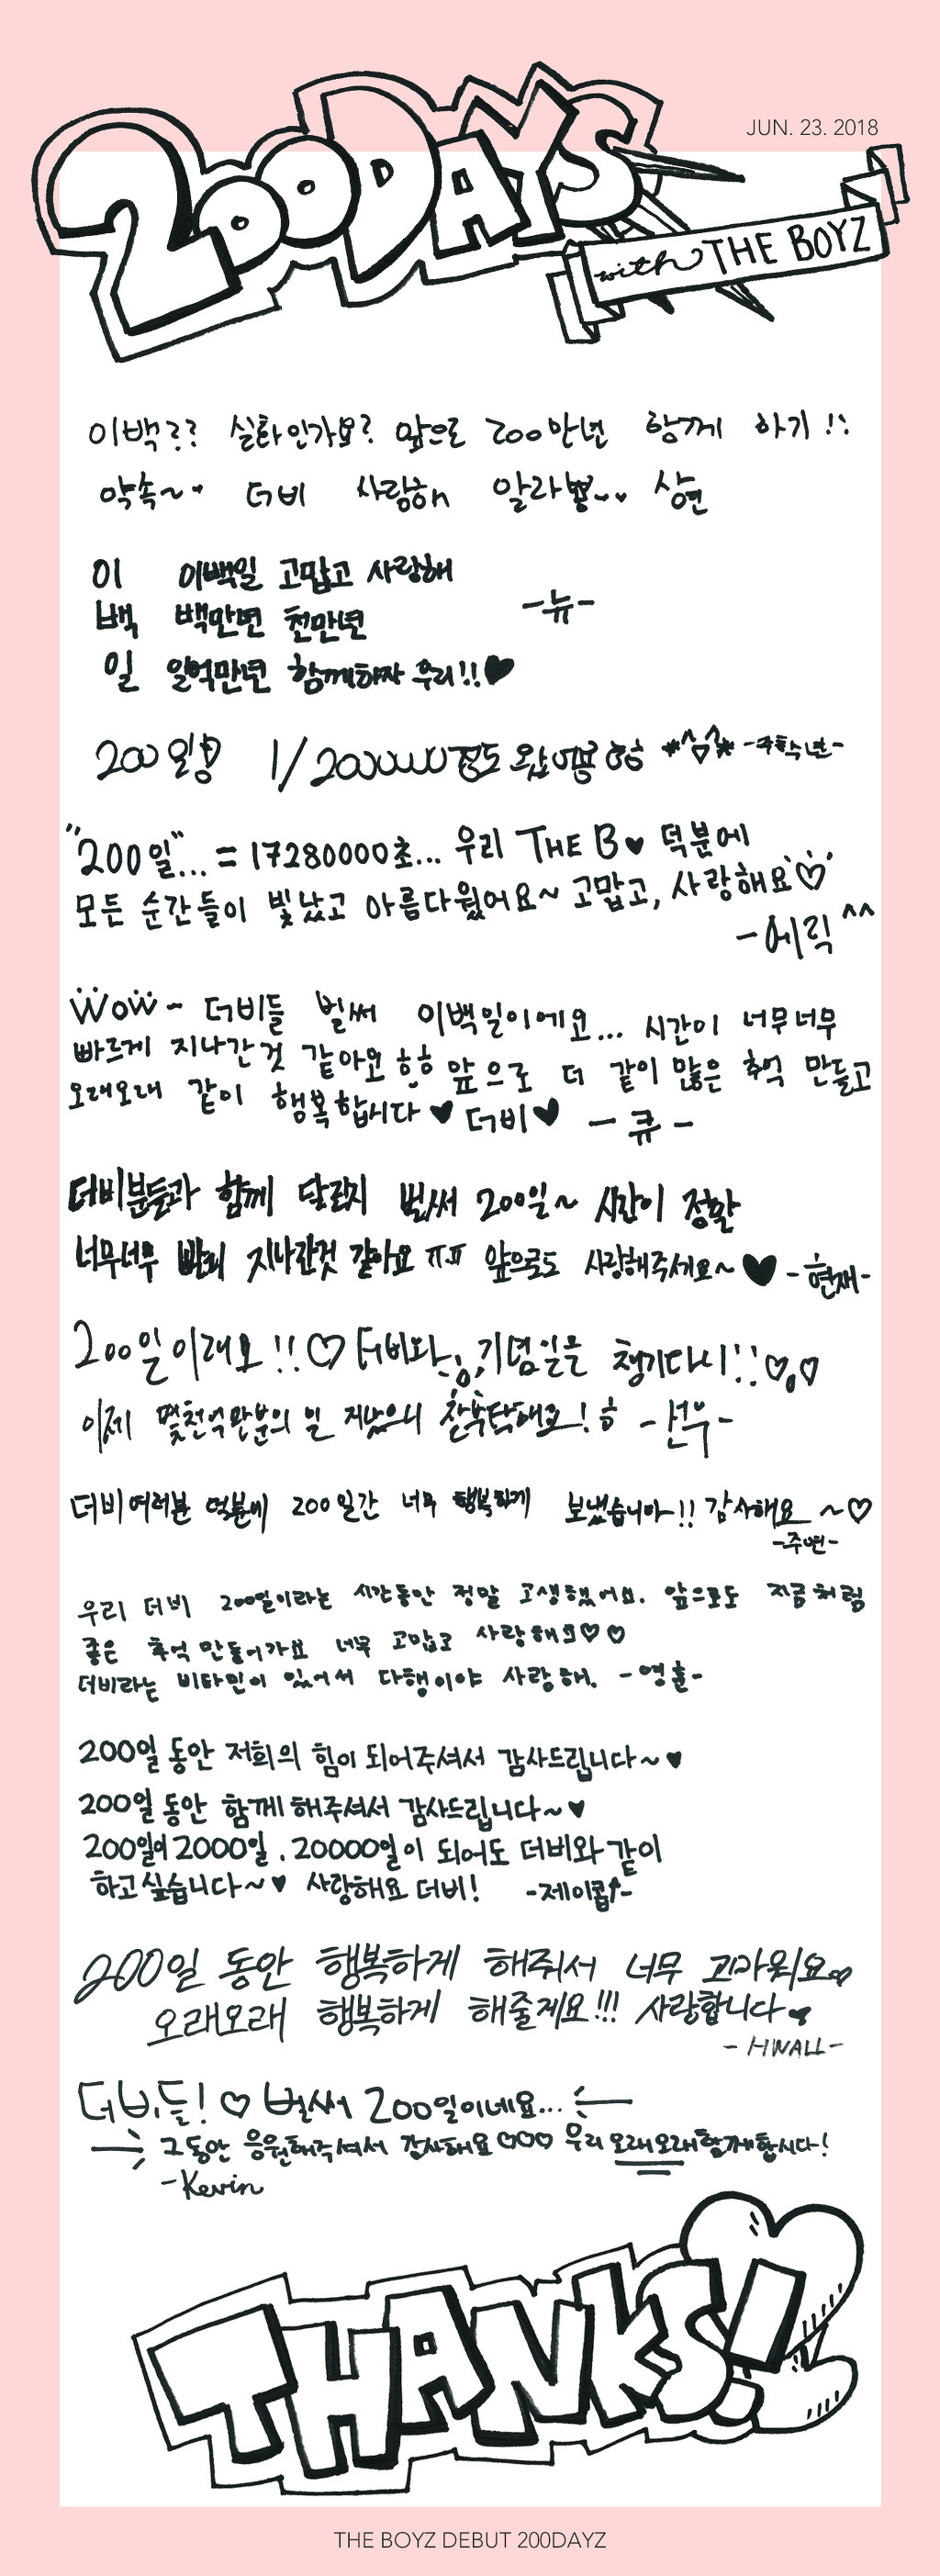 JUN. 23. 2018
200DAYS
with THE BOYZ
이백?? 실화인가요? 앞으로 200만년 함께 하기!!
약속~♥ 더비 사랑해 알라뿅~.. 상연
이 이백일 고맙고 사랑해
백 백만년 천만년
-뉴-
일 일억만년 함께하자 우리!!♥
200일 1/2000000정도 왔어용 하하 -주학년-
"200일"... = 17280000초... 우리 THE B♥ 덕분에
모든 순간들이 빛났고 아름다웠어요~ 고맙고, 사랑해요♡
-에릭^^
WOW~ 더비들 벌써 이백일이에요... 시간이 너무너무
빠르게 지나간것 같아요 ㅎㅎ 앞으로 더 같이 많은 추억 만들고
오래오래 같이 행복합시다♥ 더비♥ -큐-
더비분들과 함께 달려온지 벌써 200일~ 시간이 정말
너무너무 빨리 지나간것 같아요 ㅠㅠ 앞으로도 사랑해주세요~♥ -현재-
200일이래요!!♡ 더비와
이제 몇천억만분의 일 지났으니 잘부탁해요!ㅎ -선우-
더비여러분 덕분에 200일간 너무 행복하게 보냈습니다!! 감사해요~♡
-주연-
우리 더비 200일이라는 시간동안 정말 고생했어요. 앞으로도 지금처럼
좋은 추억 만들어가요 너무 고맙고 사랑해요♡♡
더비라는 비타민이 있어서 다행이야 사랑해. -영훈-
200일 동안 저희의 힘이 되어주셔서 감사드립니다~♥
200일 동안 함께 해주셔서 감사드립니다~♥
200일이 2000일, 20000일이 되어도 더비와 같이
하고싶습니다~♥ 사랑해요 더비! -제이콥-
200일 동안 행복하게 해줘서 너무 고마워요♡
오래오래 행복하게 해줄게요!!! 사랑합니다♥
-HWALL-
더비들!♡ 벌써 200일이네요...
그동안 응원해주셔서 감사해요♡♡♡ 우리 오래오래 함께합시다!
-Kevin
THANKS!
THE BOYZ DEBUT 200DAYZ